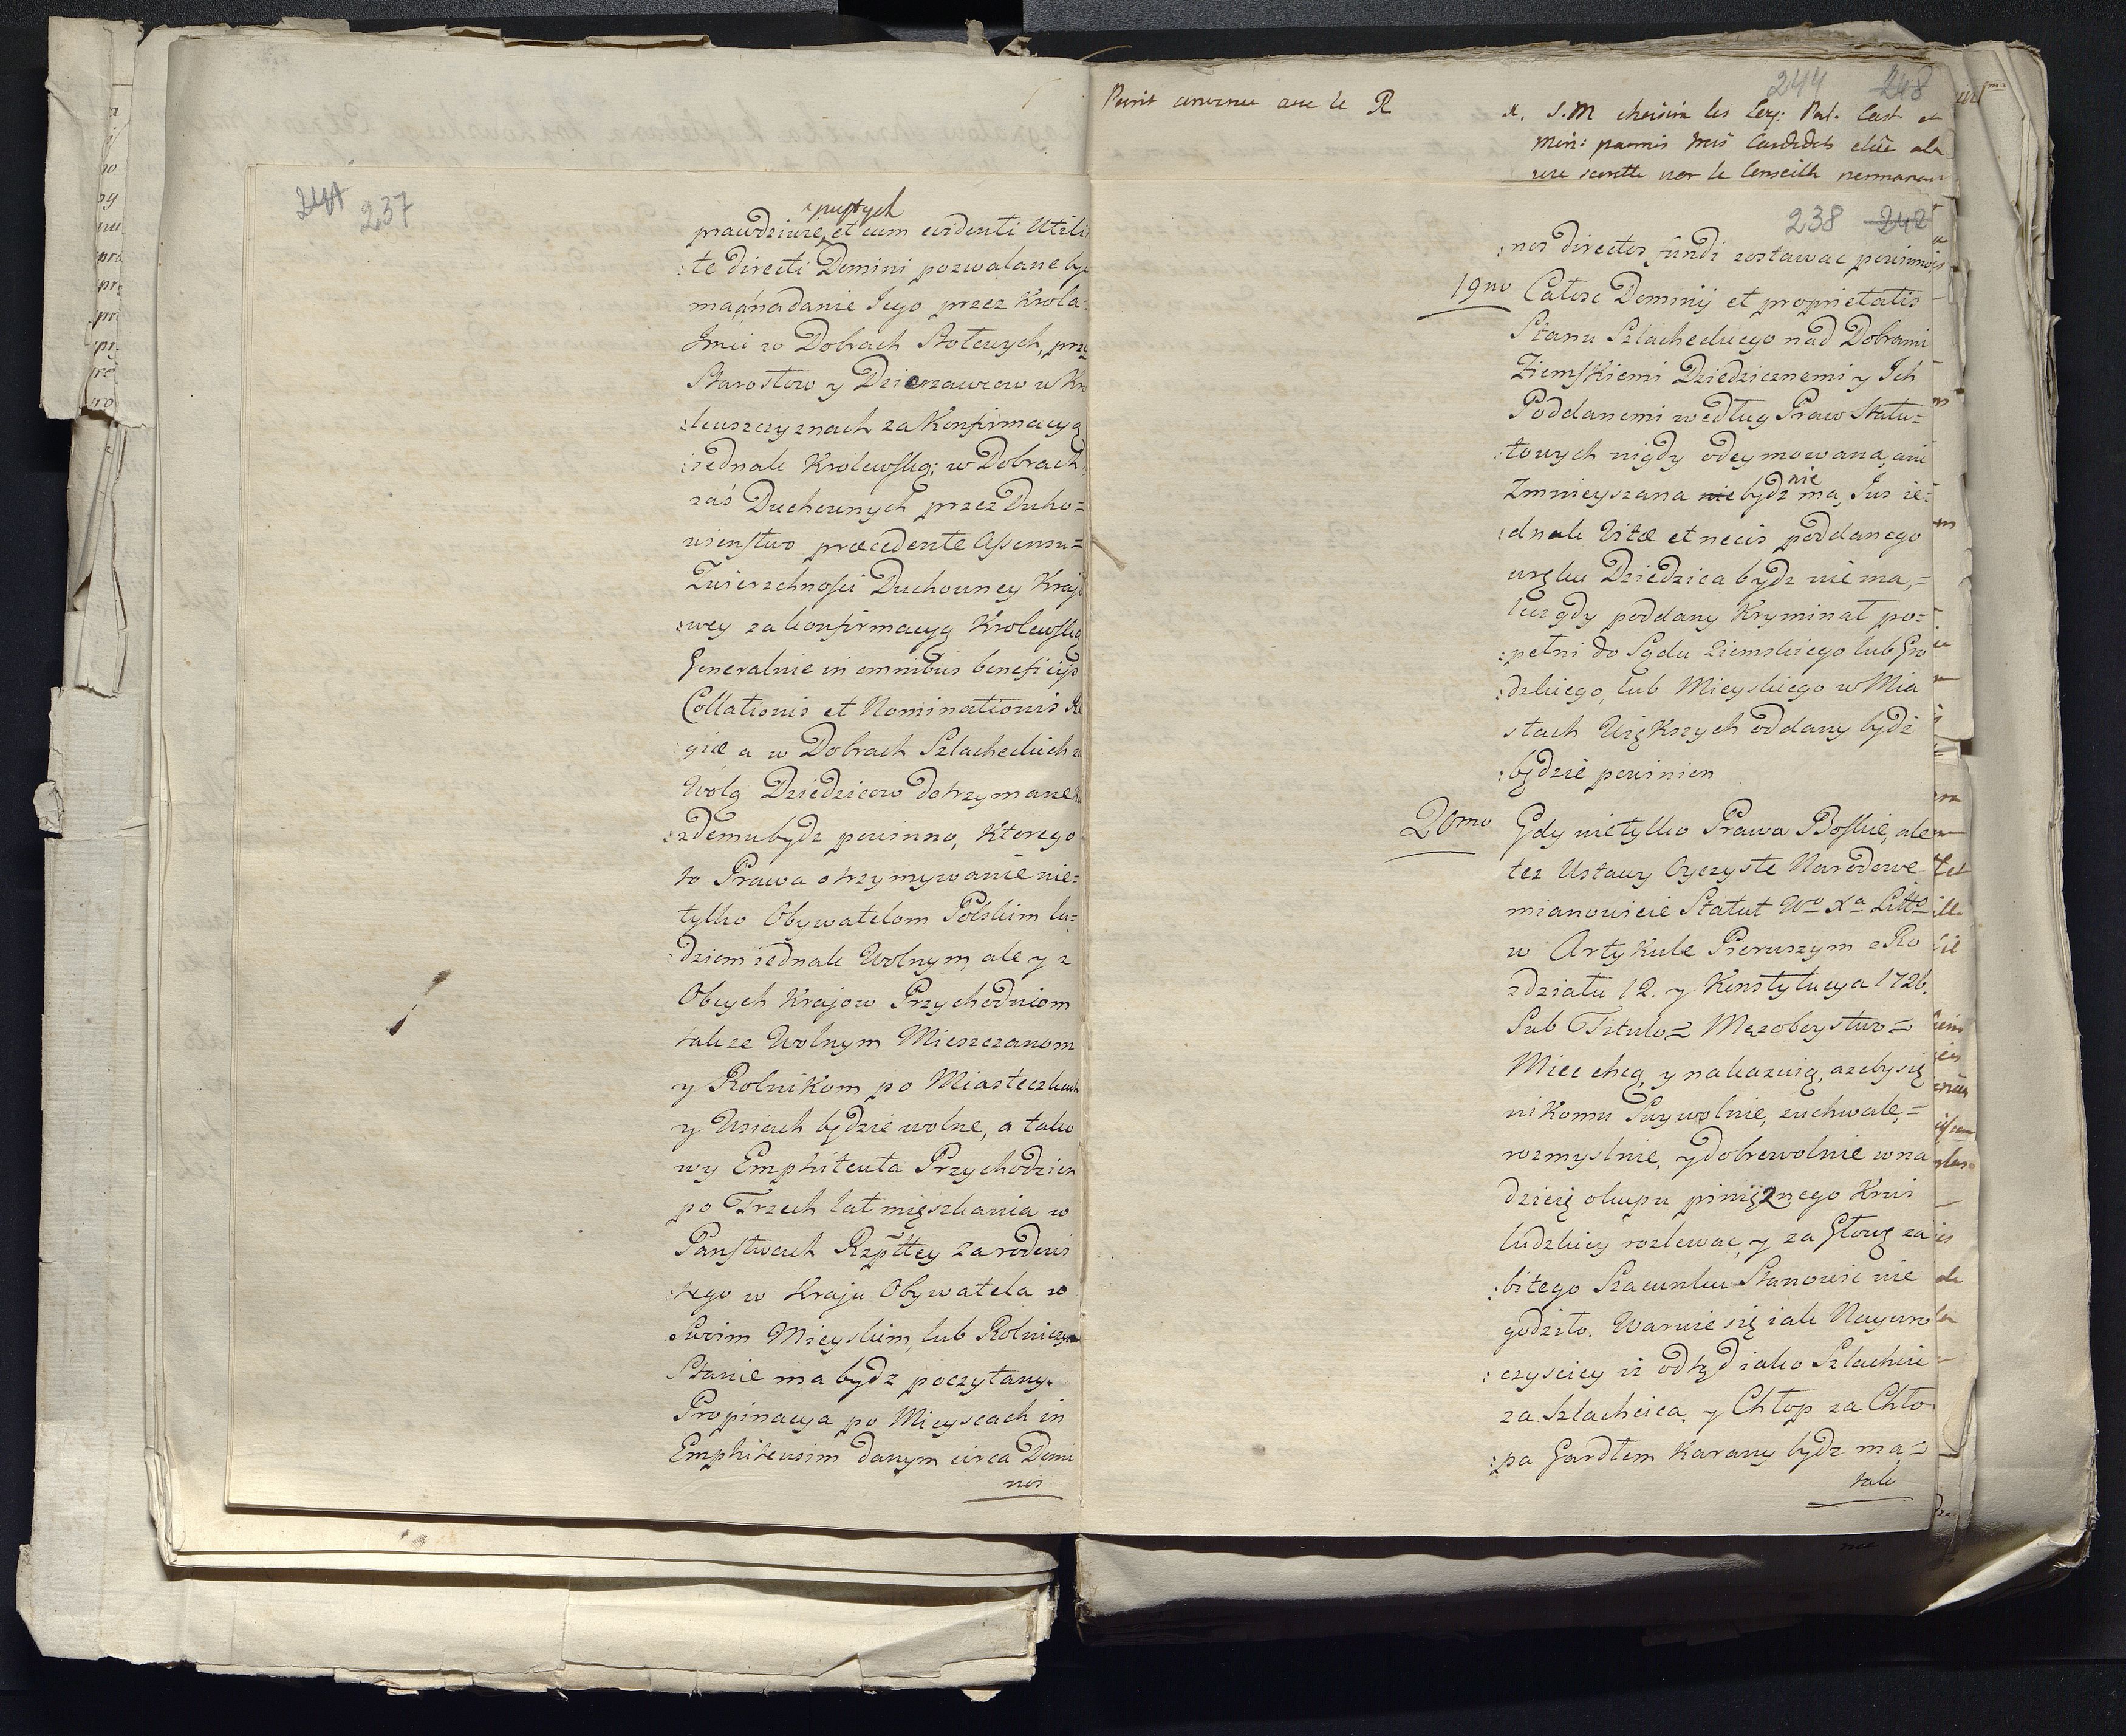 241 237
pustych
prawdziwie, et cum evidenti Utili
:te directi Domini pozwalane by
ma, nadanie Jego przez Krola
Jmci w Dobrach Stołowych, prz
Starostow y Dzierzawcow w Kr
:lewszczyznach za Konfirmacyą
:iednak Krolewską; w Dobrach
zaś Duchownych przez Ducho=
wienstwo præcedente Assensu=
Zwierzchnosci Duchowney Kraj
:wey za konfirmacyą Krolewską
Generalnie in omnibus beneficijs
Collationis et Nominationis Re
:giæ a w Dobrach Szlacheckich z
Wolą Dziedzicow dotrzymane
:zdemu bydz powinno, Ktorego
to Prawa otrzymywanie nie=
tylko Obywatelom Polskim lu=
:dziom iednak Wolnym, ale y z
Obcych Krajow Przychodniom
takze Wolnym Mieszczanom
y Rolnikom po Miasteczkach
y Wsiach będzie wolne, a tako
wy Emphiteuta Przychodzien
po Trzech lat mięszkania w
Panstwach Rzpttey za rodowi
:tego w Kraju Obywatela w
Swoim Mieyskim, lub Rolniczym
Stanie ma bydz poczytany.
Propinacya po Mieyscach in
Emphiteusim danym circa Domi
nos
Point convenu avec le R
244 248
x. S.M choisira les Pal. Cast. et
Min: parmis trois Candidats elûs a la
238 242
:nos directos fundi zostawac powinna
19no Całosc Dominij et proprietatis
Stanu Szlacheckiego nad Dobrami
Ziemskiemi Dziedzicznemi y Ich
Poddanemi według Praw Statu=
:towych nigdy odeymowana, ani
nie
Zmnieyszana nie bydz ma, Jus ie=
:dnak Vitæ et necis poddanego
w ręku Dziedzica bydz nie ma,=
lecz gdy poddany Kryminał po=
:pełni do Sądu Ziemskiego lub Gro
:dzkiego, lub Mieyskiego w Mia
stach Większych oddany bydz
:będzie powinien
20mo Gdy nietylko Prawa Boskie, ale
tez Ustawy Oyczyste Narodowe
mianowicie Statut Wo Xa Litto
w Artykule Pierwszym z Ro
zdziału 12. y Konstytucya 1726.
Sub Titulo= Męzoboystwo=
Miec chcą, y nakazuią, azeby się
nikomu Swywolnie, zuchwale,=
rozmyslnie, y dobrowolnie w na
dzieię okupu pinięznego Krwi
ludzkiey rozlewac, y za Głowę za
:bitego Szacunku Stanowic nie
godziło. Waruie się iak Nayuro
:czysciey iz odtąd iako Szlachcic
za Szlachcica, y Chłop za Chło
:pa Gardłem Karany bydz ma,=
tak